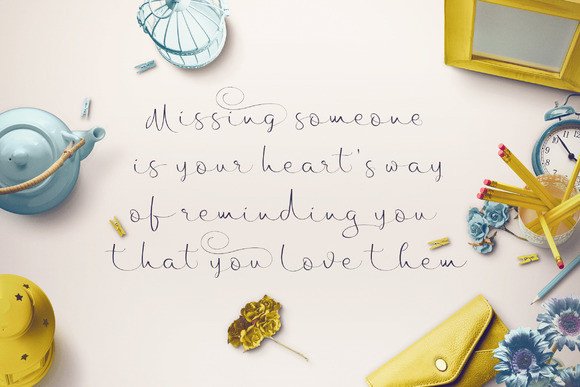 Missing someone
is your heart's way
of reminding you
that you love them